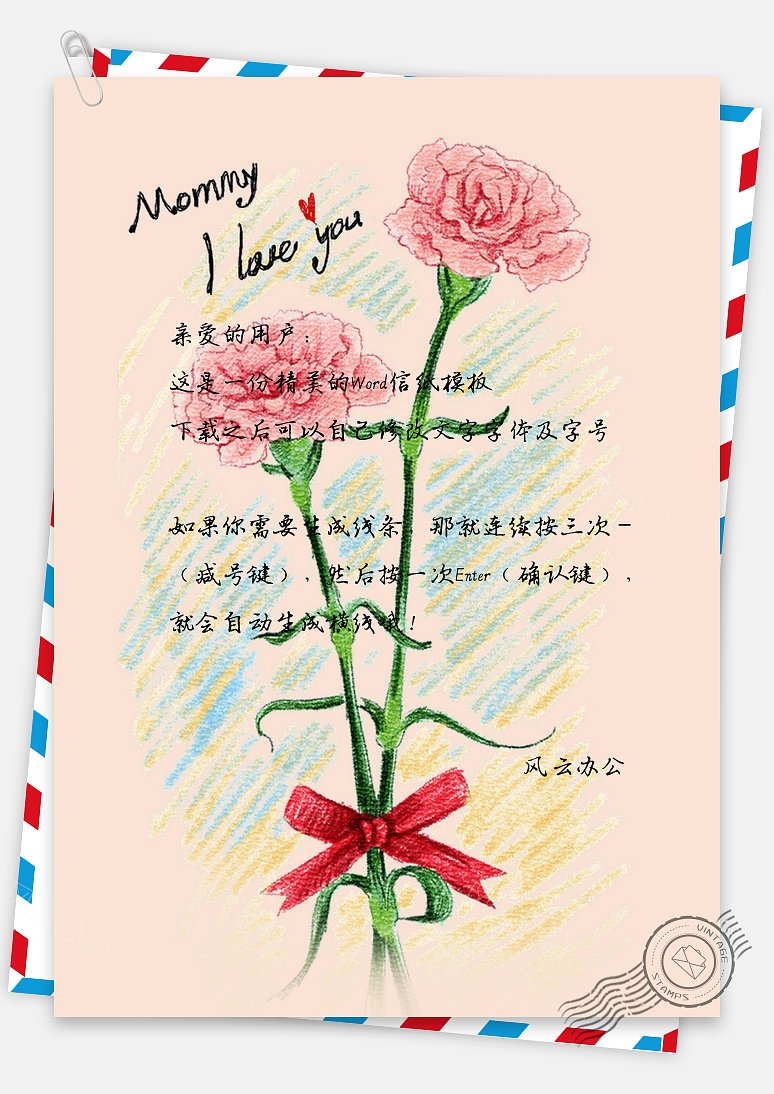 Mommy
I love you
亲爱的用户：
这是一份精美的Word信纸模板
下载之后可以自己修改文字字体及字号
如果你需要生成线条，那就连续按三次－
（减号键），然后按一次Enter（确认键），
就会自动生成横线哦！
风云办公
VINTAGE
STAMPS